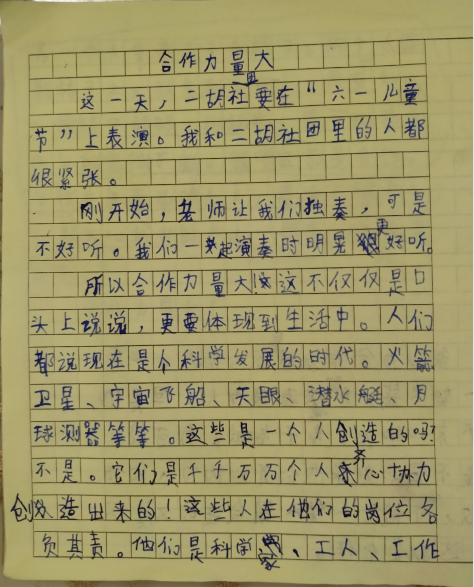 合作力量大
这一天，二胡社团要在“六一儿童
节”上表演。我和二胡社团里的人都
很紧张。
刚开始，老师让我们独奏，可是
不好听。我们一起演奏时明显更好听。
所以合作力量大！这不仅仅是口
头上说说，更要体现到生活中。人们
都说现在是个科学发展的时代。火箭
卫星、宇宙飞船、天眼、潜水艇、月
球测器等等。这些是一个人创造的吗？
不是。它们是千千万万个人齐心协力
创造出来的！这些人在他们的岗位各
负其责。他们是科学家、工人、工作